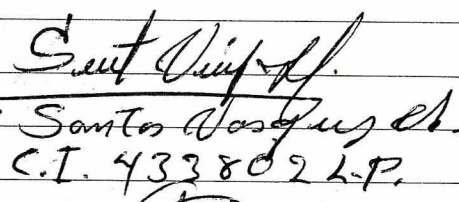 Santos Vasquez Ch.
C.I. 433802 L.P.